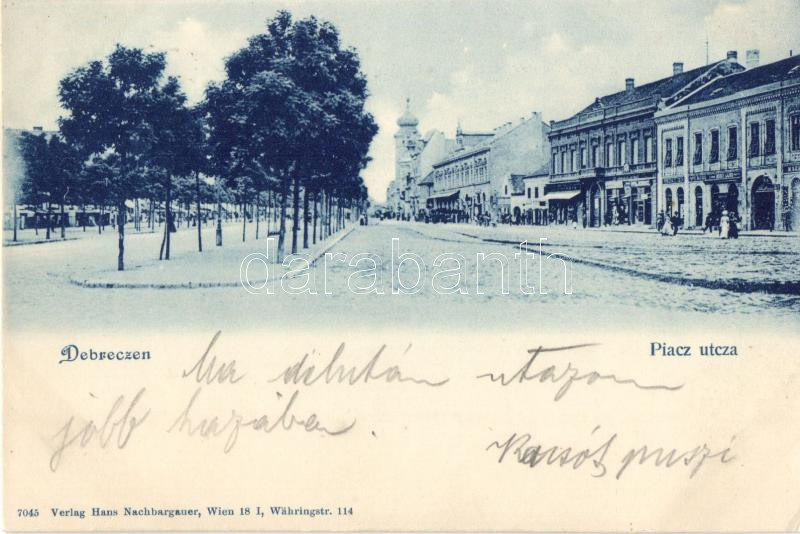 darabanth
Debreczen
Piacz utcza
Ma délután utazom
jobb hazában.
puszi
7045 Verlag Hans Nachbargauer, Wien 18 I, Währingstr. 114